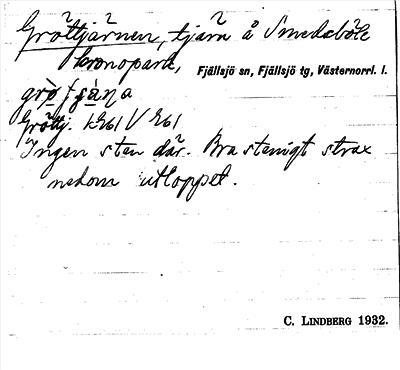 Gröttjärnen, tjärn å Smedsböle
kronopark,
Fjällsjö sn, Fjällsjö tg, Västernorrl. l.
Gröttj.
Ingen sten där. Bra stenigt strax
nedom utloppet.
C. LINDBERG 1932.